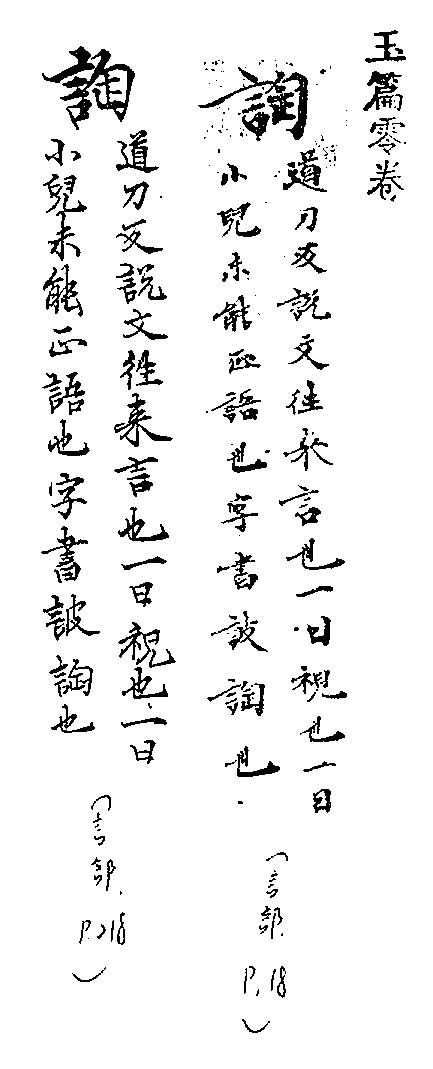 玉篇零卷
詾
道刀反説文往来言也一曰視也一曰
小兒未能正語也字書詖詾也
(言部. P.18)
詾
道刀反説文往来言也一曰視也一曰
小兒未能正語也字書詖詾也
(言部. P.218)